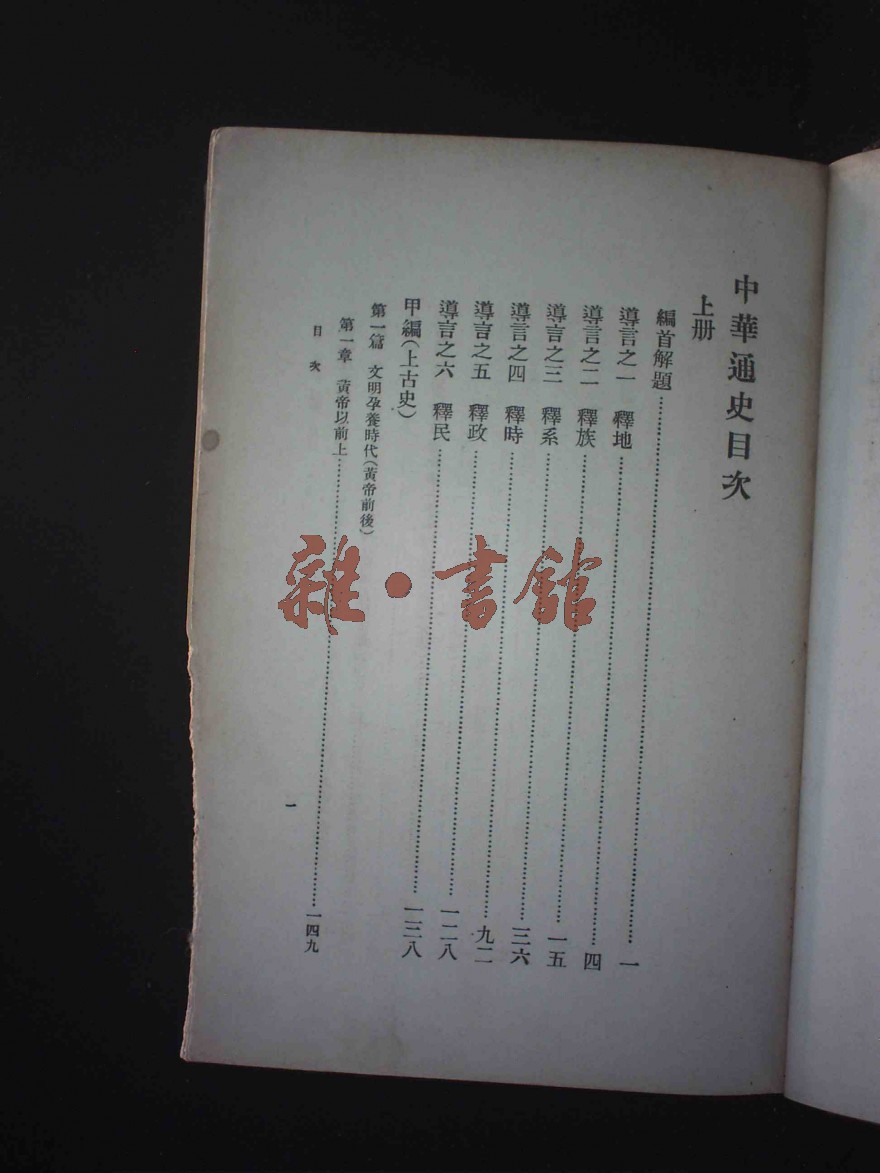 中華通史目次
上册
編首解題……一
導言之一 釋地……四
導言之二 釋族……一五
導言之三 釋系……三六
導言之四 釋時……九二
導言之五 釋政……一二八
導言之六 釋民……一三八
甲編(上古史)
第一篇 文明孕養時代(黃帝前後)
第一章 黃帝以前上……一四九
目次
一
雜·書館